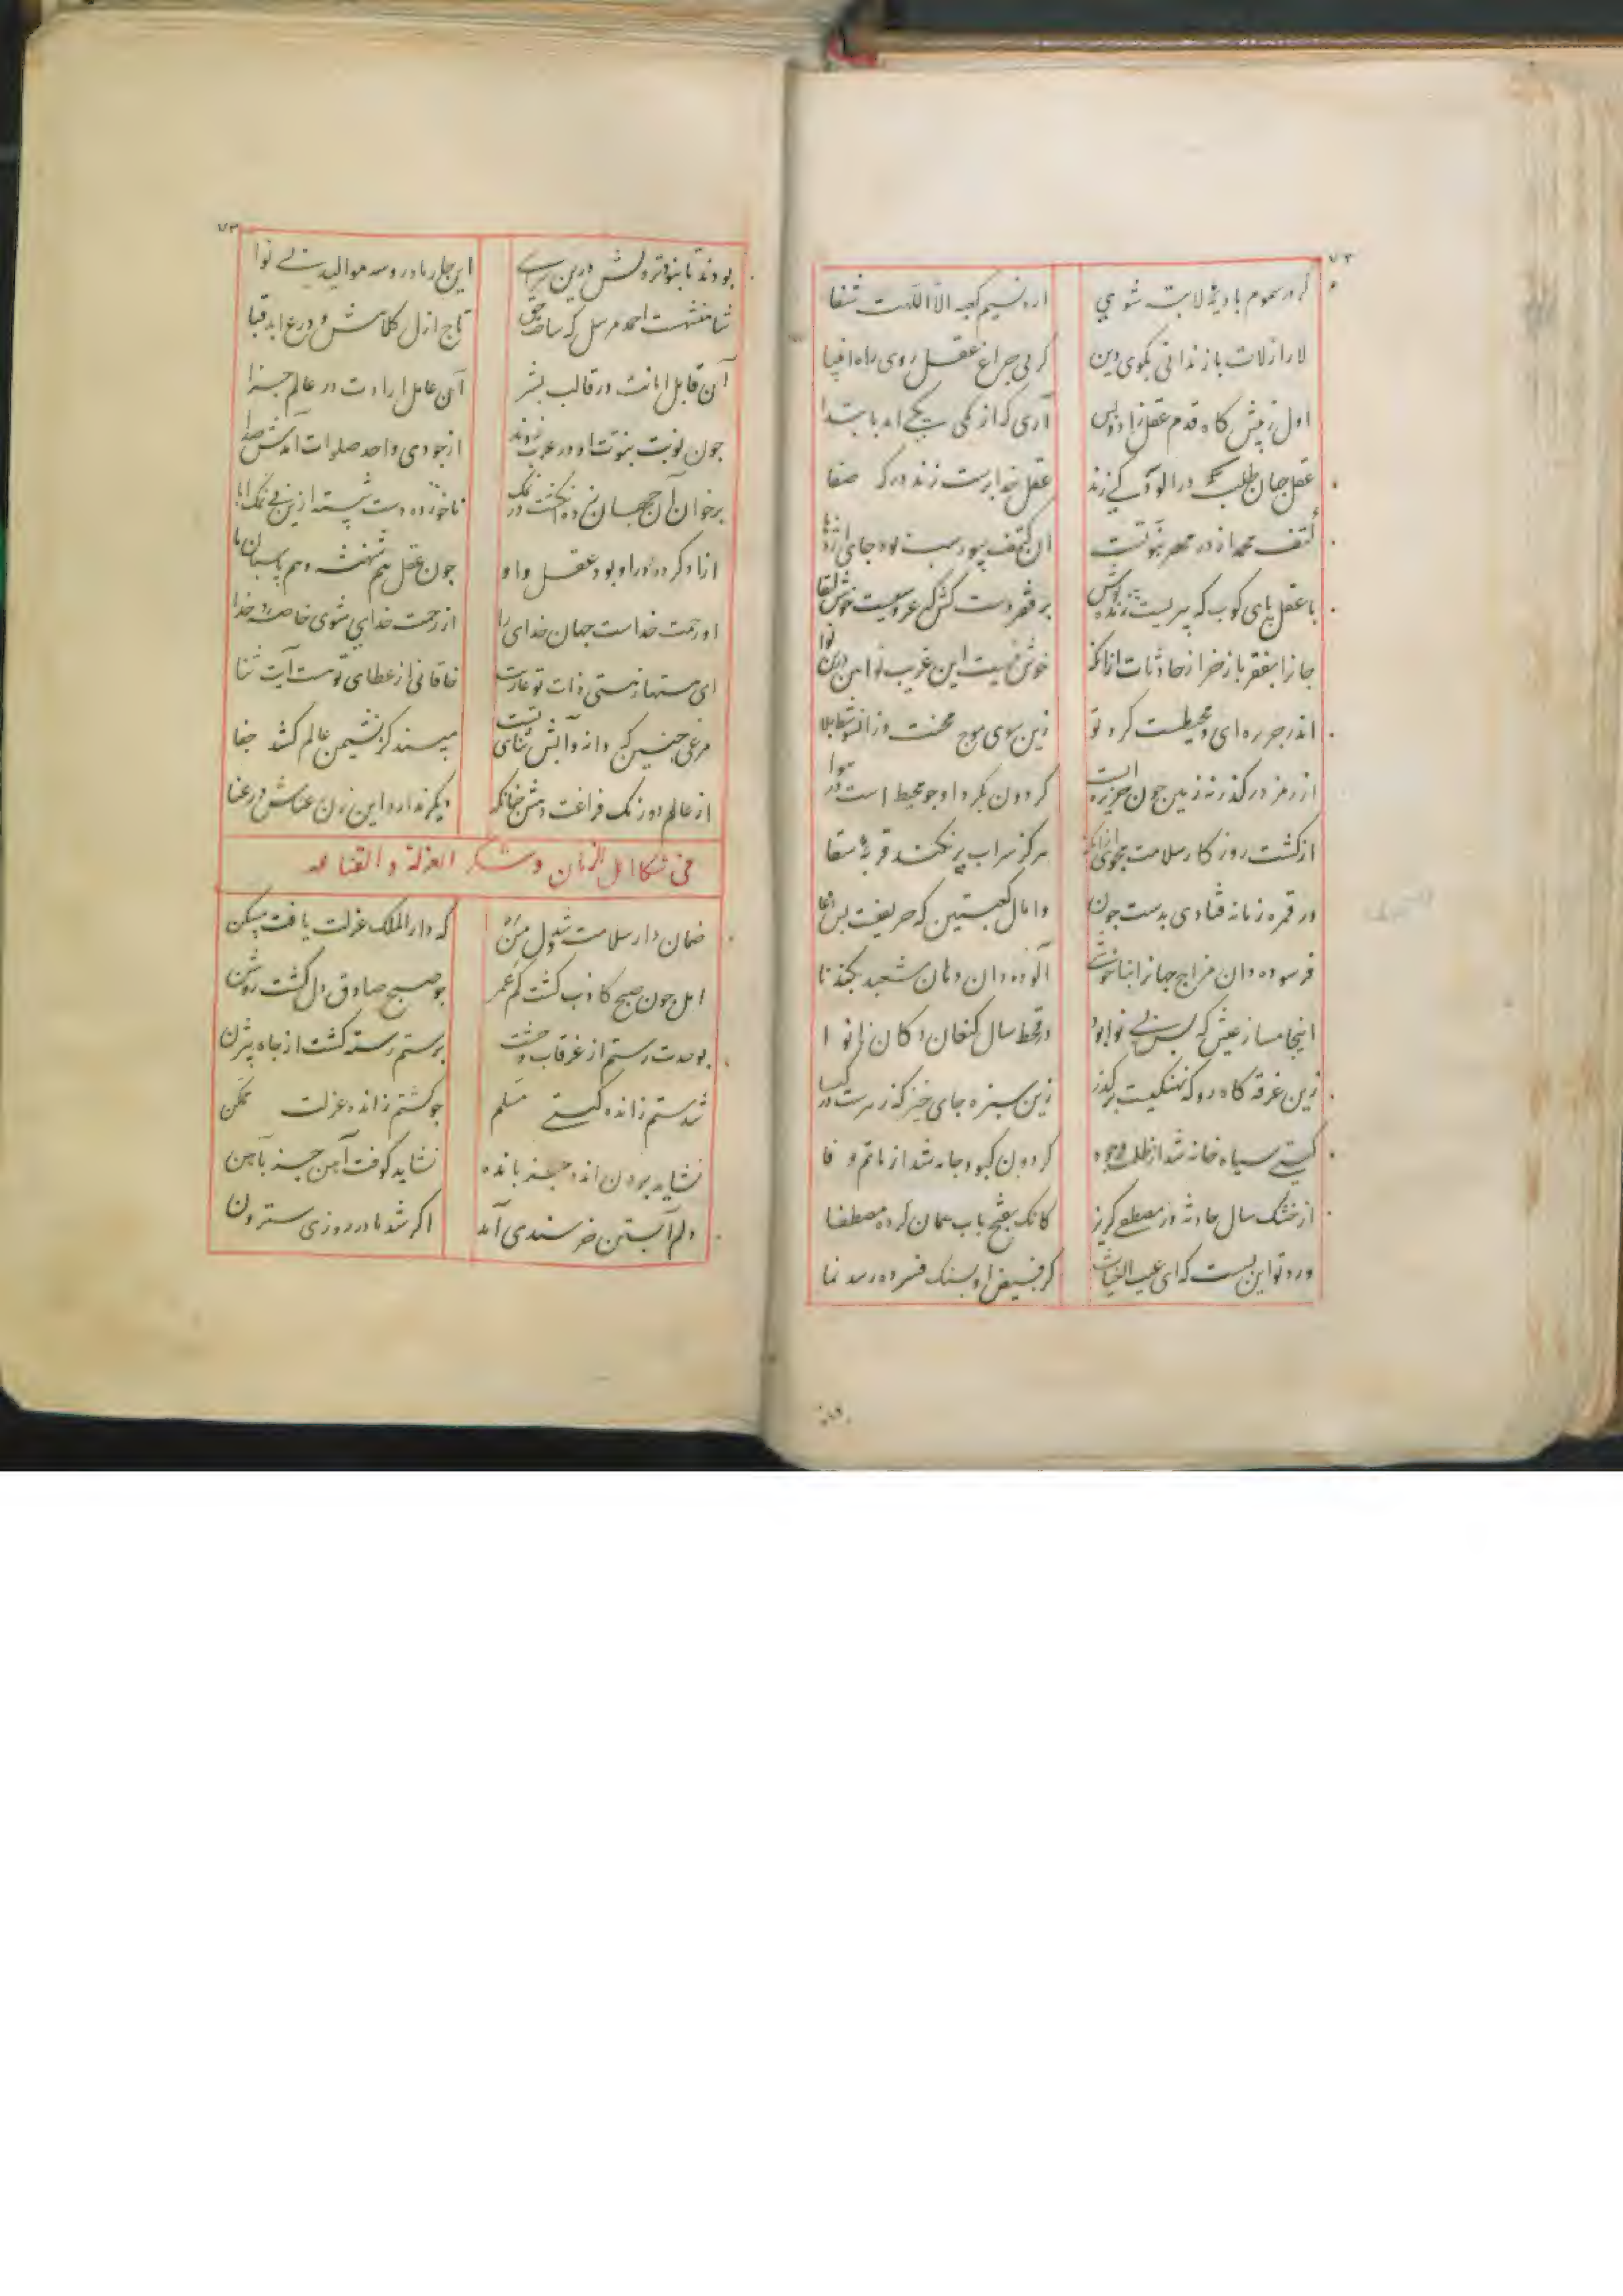 ۷۲
کر در سموم بادیهٔ لا تبه شوی    ارد نسیم کعبه الا اللهت شفا
لا را ز لات باز ندانی بکوی دین    کر بی چراغ عقل روی راه انبیا
اول ز پیش کاه قدم عقل زاد و بس    آری که از یکی یکی آمد بابتدا
عقل جهان طلب در آلودکی زند    عقل خدا پرست زند درکه صفا
کتف محمد از در مهر نبوتست    آن کتف بیوراسب بود جای اژدها
با عقل پای کوب که پیریست ژنده پوش    بر فقر دست کش که عروسیست خوش لقا
جانرا بفقر باز خر از حادثات ازانکه    خوش نیست این غریب نوا این درین نوا
اندر جزیره ای و محیطست کرد تو    زین سوی موج محنت وز آنسو شط بلا
از رمز درکذر نه زمین چون جزیره ایست    کردون بکرد او چو محیط است در هوا
از کشت روزکار سلامت مجوی ازانکه    هرکز سراب پر نکند قربهٔ سقا
در قمرهٔ زمانه فتادی بدست خون    وامال کعبتین که حریفیست بس دغا
فرسوده دان مزاج جهانرا بناخوشی    آلوده دان دهان مشعبد بکندنا
اینجا مساز عیش که بس بی نوا بود    در قحط سال کنعان دکان نانوا
زین غرقه کاه رو که نهنکیست بر کذر    زین سبزه جای خیز که زهرست در کیا
کیتی سیاه خانه شد از ظلمت وجود    کردون کبود جامه شد از ماتم وفا
از خشک سال حادثه در مصطفی کریز    کانک بفتح باب ضمان کرده مصطفا
ورد تو این بسست که ای غیب الغیاث    کز فیض او بسنک فسرده رسد نما
۷۳
بودند تا نبود نزولش درین سرای    این چار مادر و سه موالید بی نوا
شاهنشهیست احمد مرسل که ساخت حق    تاج ازل کلاهش و درع ابد قبا
آن قابل امانت در قالب بشر    آن عامل ارادت در عالم جزا
چون نوبت نبوت او در عرب زدند    از جودی و احد صلوات آمدش صدا
برخوان آن جهان زده انکشت در نمک    ناخورده دست شسته ازین بی نمک ابا
آزاد کرد در او بود عقل و او    چون عقل هم شهنشه و هم پاسبان ما
او رحمت خداست جهان خدای را    از رحمت خدای شوی خاصهٔ خدا
ای هست ها ز هستی ذات تو عاریت    خاقانی از عطای تو هست آیت ثنا
مرغی چنین که دانه و آبش ثنای تست    مپسند کز نشیمن عالم کشد جفا
از عالم دو رنک فراغت دهش چنانکه    دیکر ندارد این زن رعناش در عنا
فی شکا اهل الزمان و شکر العزلة و القناعه
ضمان دار سلامت شد دل من    که دار الملک عزلت یافت مسکن
امل چون صبح کاذب کشت کم عمر    چو صبح صادق دل کشت روشن
بوحدت رستم از غرقاب وحشت    برستم رسته کشت از چاه بیژن
شدستم ز انده کیتی مسلم    چو کشتم ز انده عزلت ممکن
نشاید بردن انده جز بانده    نشاید کوفت آهن جز بآهن
دلم آبستن خرسندی آمد    اکر شد مادر روزی سترون